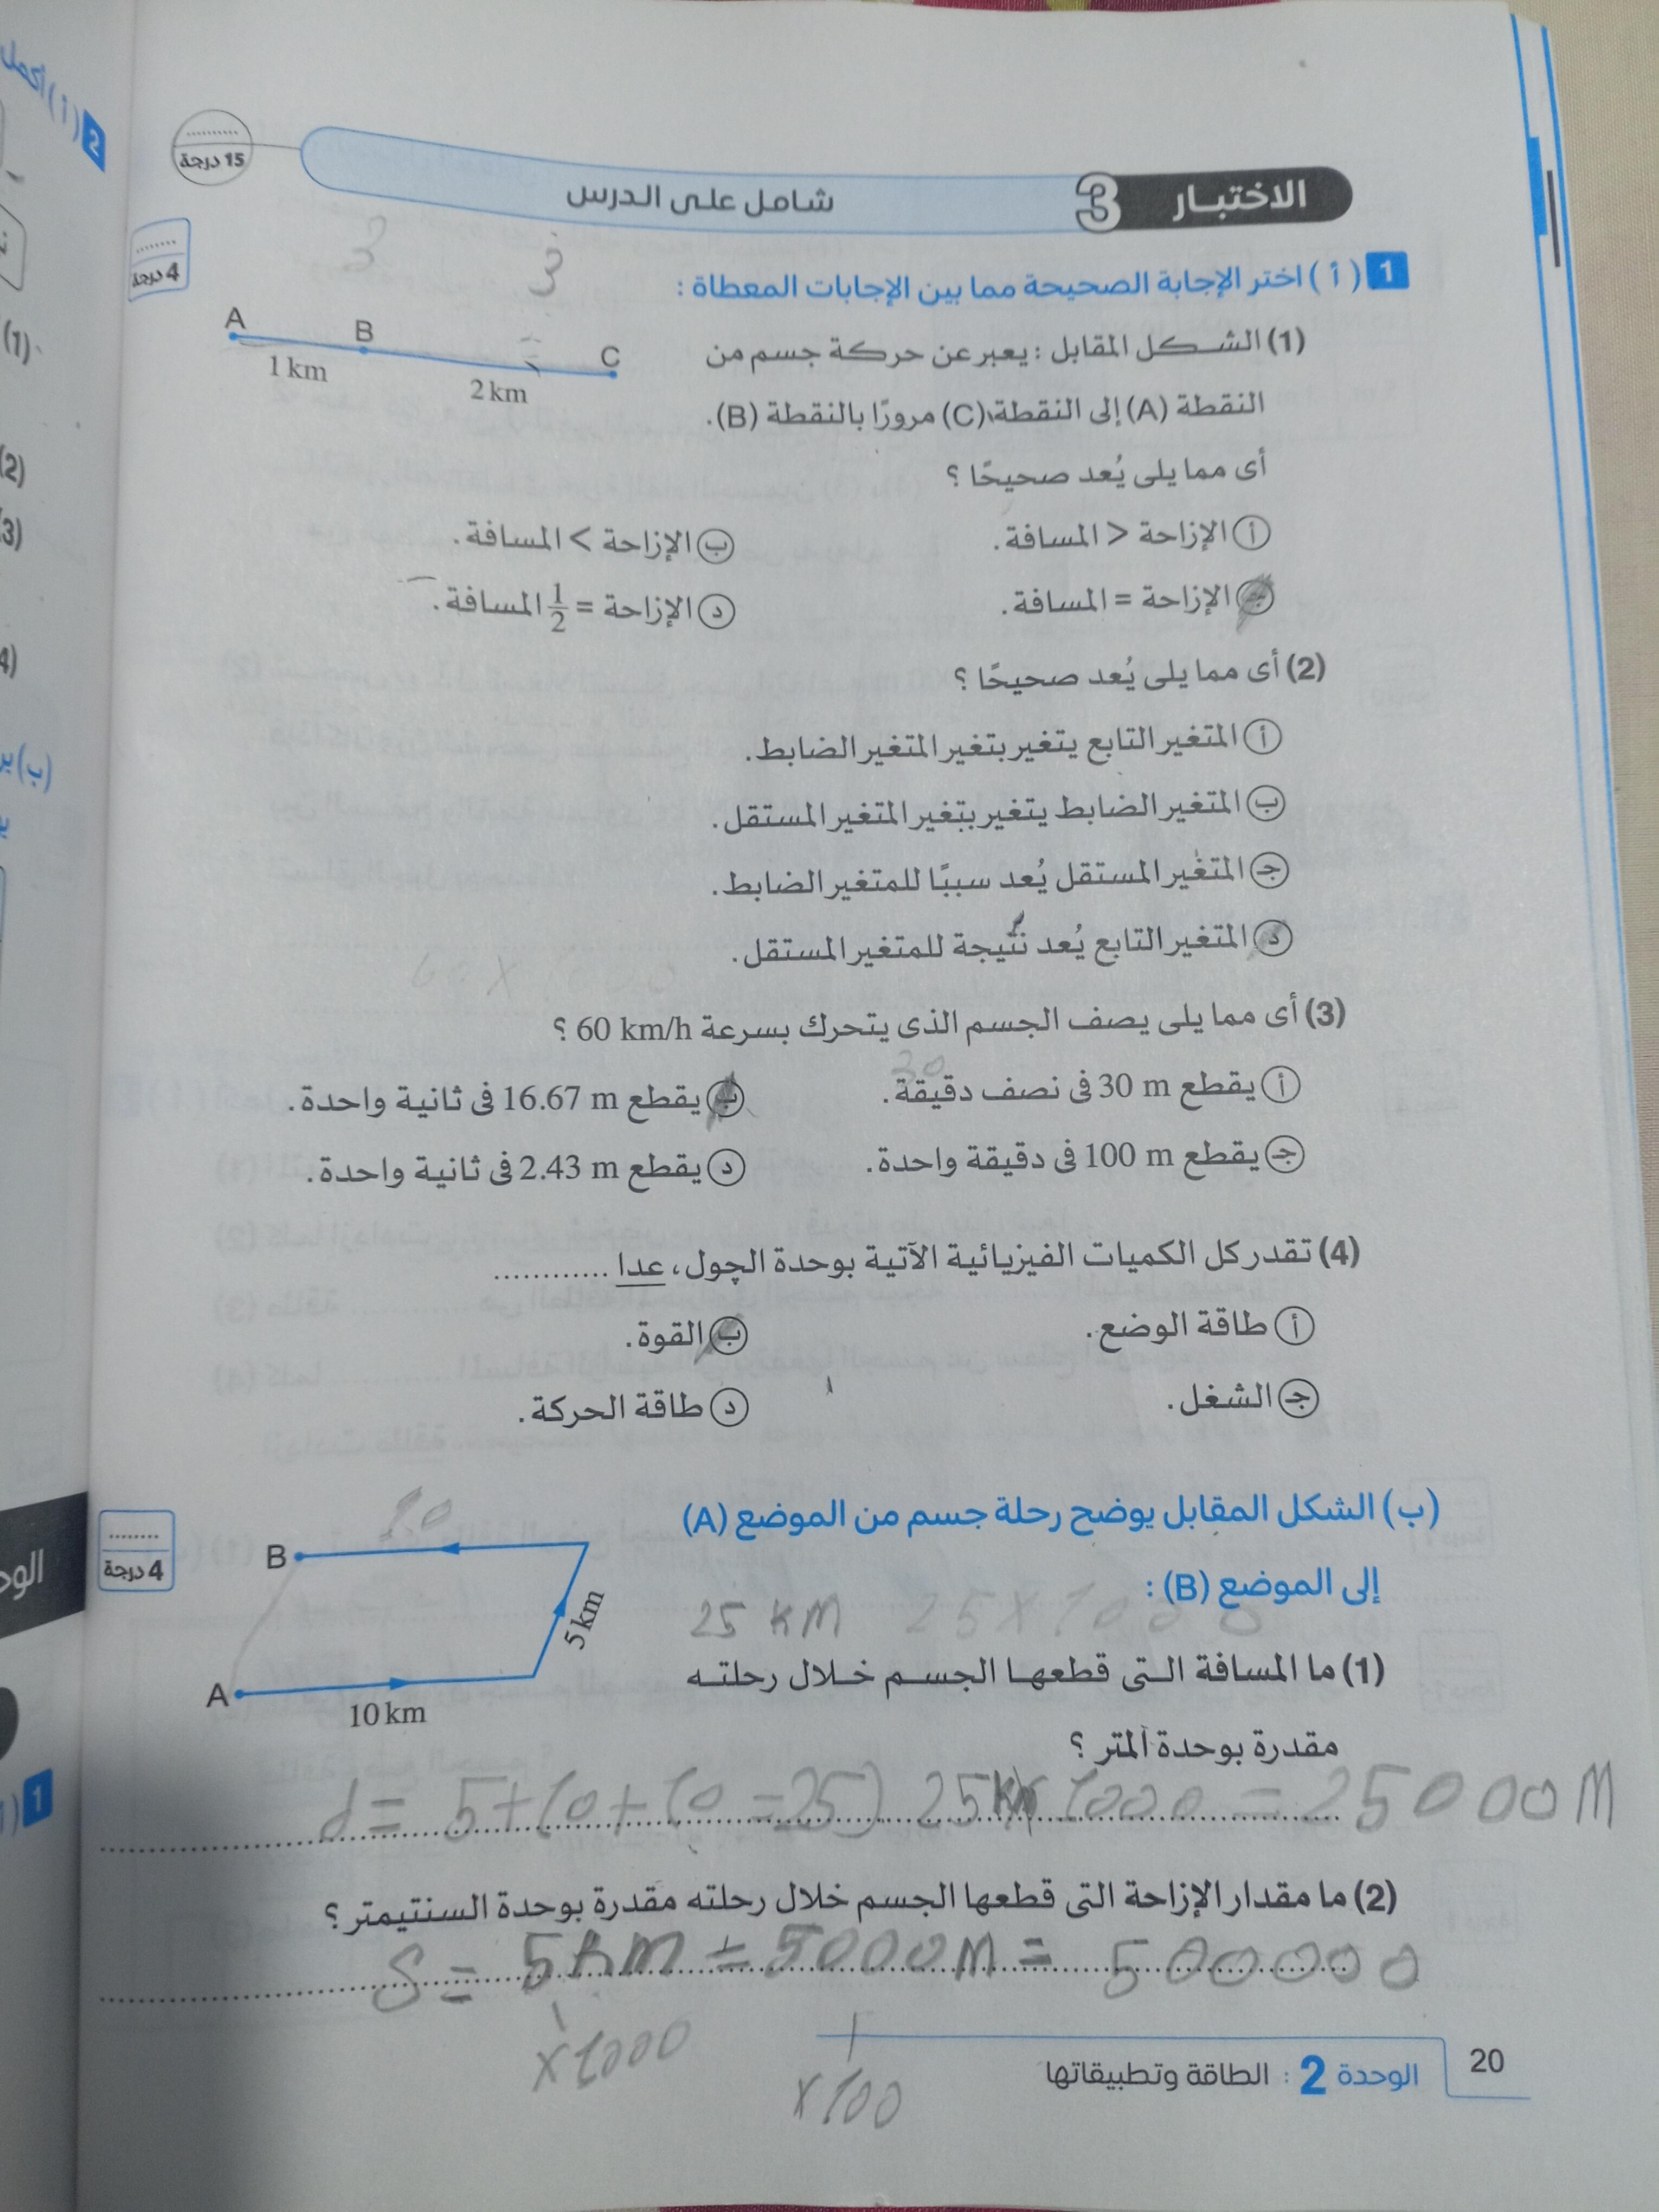 15 درجة
الاختبار 3 شامل على الدرس
4 درجة
3 3
1 ( أ ) اختر الإجابة الصحيحة مما بين الإجابات المعطاة :
A B C
1 km 2 km
(1) الشكل المقابل : يعبر عن حركة جسم من
النقطة (A) إلى النقطة (C) مرورًا بالنقطة (B).
أى مما يلى يُعد صحيحًا ؟
أ الإزاحة > المسافة. ب الإزاحة < المسافة.
جـ الإزاحة = المسافة. د الإزاحة = 1/2 المسافة.
(2) أى مما يلى يُعد صحيحًا ؟
أ المتغير التابع يتغير بتغير المتغير الضابط.
ب المتغير الضابط يتغير بتغير المتغير المستقل.
جـ المتغير المستقل يُعد سببًا للمتغير الضابط.
د المتغير التابع يُعد نتيجة للمتغير المستقل.
(3) أى مما يلى يصف الجسم الذى يتحرك بسرعة 60 km/h ؟
أ يقطع 30 m فى نصف دقيقة. ب يقطع 16.67 m فى ثانية واحدة.
جـ يقطع 100 m فى دقيقة واحدة. د يقطع 2.43 m فى ثانية واحدة.
(4) تقدر كل الكميات الفيزيائية الآتية بوحدة الچول، عدا ............
أ طاقة الوضع. ب القوة.
جـ الشغل. د طاقة الحركة.
4 درجة
(ب) الشكل المقابل يوضح رحلة جسم من الموضع (A)
إلى الموضع (B) :
10
B
5 km
A
10 km
25 KM 25×1000
(1) ما المسافة التى قطعها الجسم خلال رحلته
مقدرة بوحدة المتر ؟
d = 5+10+10 = 25) 25KM × 1000 = 25000M
(2) ما مقدار الإزاحة التى قطعها الجسم خلال رحلته مقدرة بوحدة السنتيمتر ؟
S = 5KM = 5000M = 500000
×1000 ×100
20 الوحدة 2 : الطاقة وتطبيقاتها
2
(1)
(2)
(3)
1